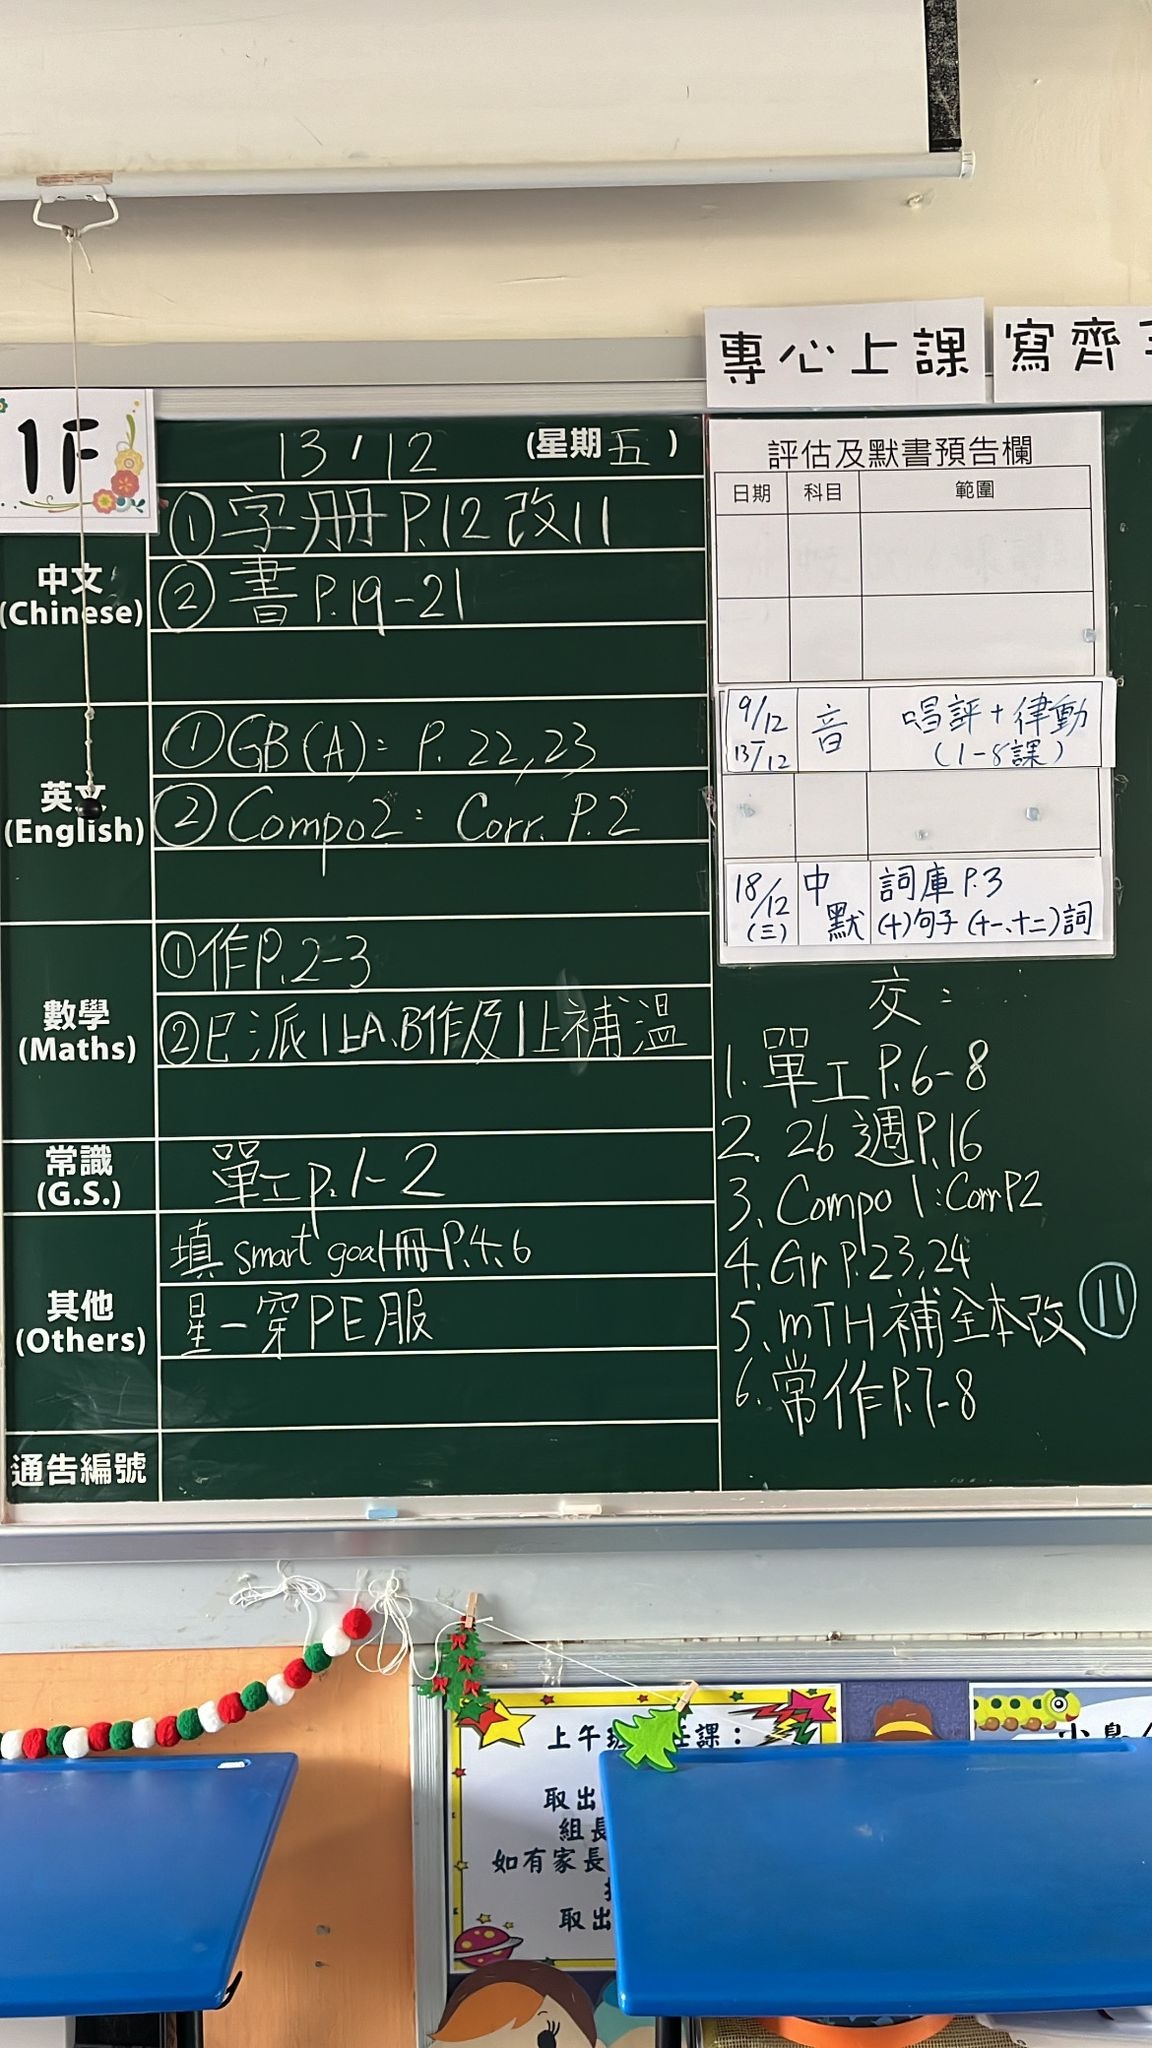 專心上課
寫齊
1F
13/12 (星期五)
中文
(Chinese)
①字冊 P.12 改11
②書 P.19-21
英文
(English)
①GB(A): P. 22,23
②Compo2: Corr. P.2
數學
(Maths)
①作P.2-3
②已派1上A、B作及1上補溫
常識
(G.S.)
單工p.1-2
其他
(Others)
填 smart goal冊P.4、6
星一穿PE服
通告編號
評估及默書預告欄
日期 科目 範圍
9/12 音 唱評+律動
13/12 (1-8課)
18/12 中 詞庫P.3
(三) 默 (十)句子(十一、十二)詞
交:
1. 單工 P.6-8
2. 26週P.16
3. Compo 1: Corr P2
4. Gr P.23,24
5. mTH補全本改 ⑪
6. 常作P.7-8
上午班 任課:
取出
組長
如有家長
取出